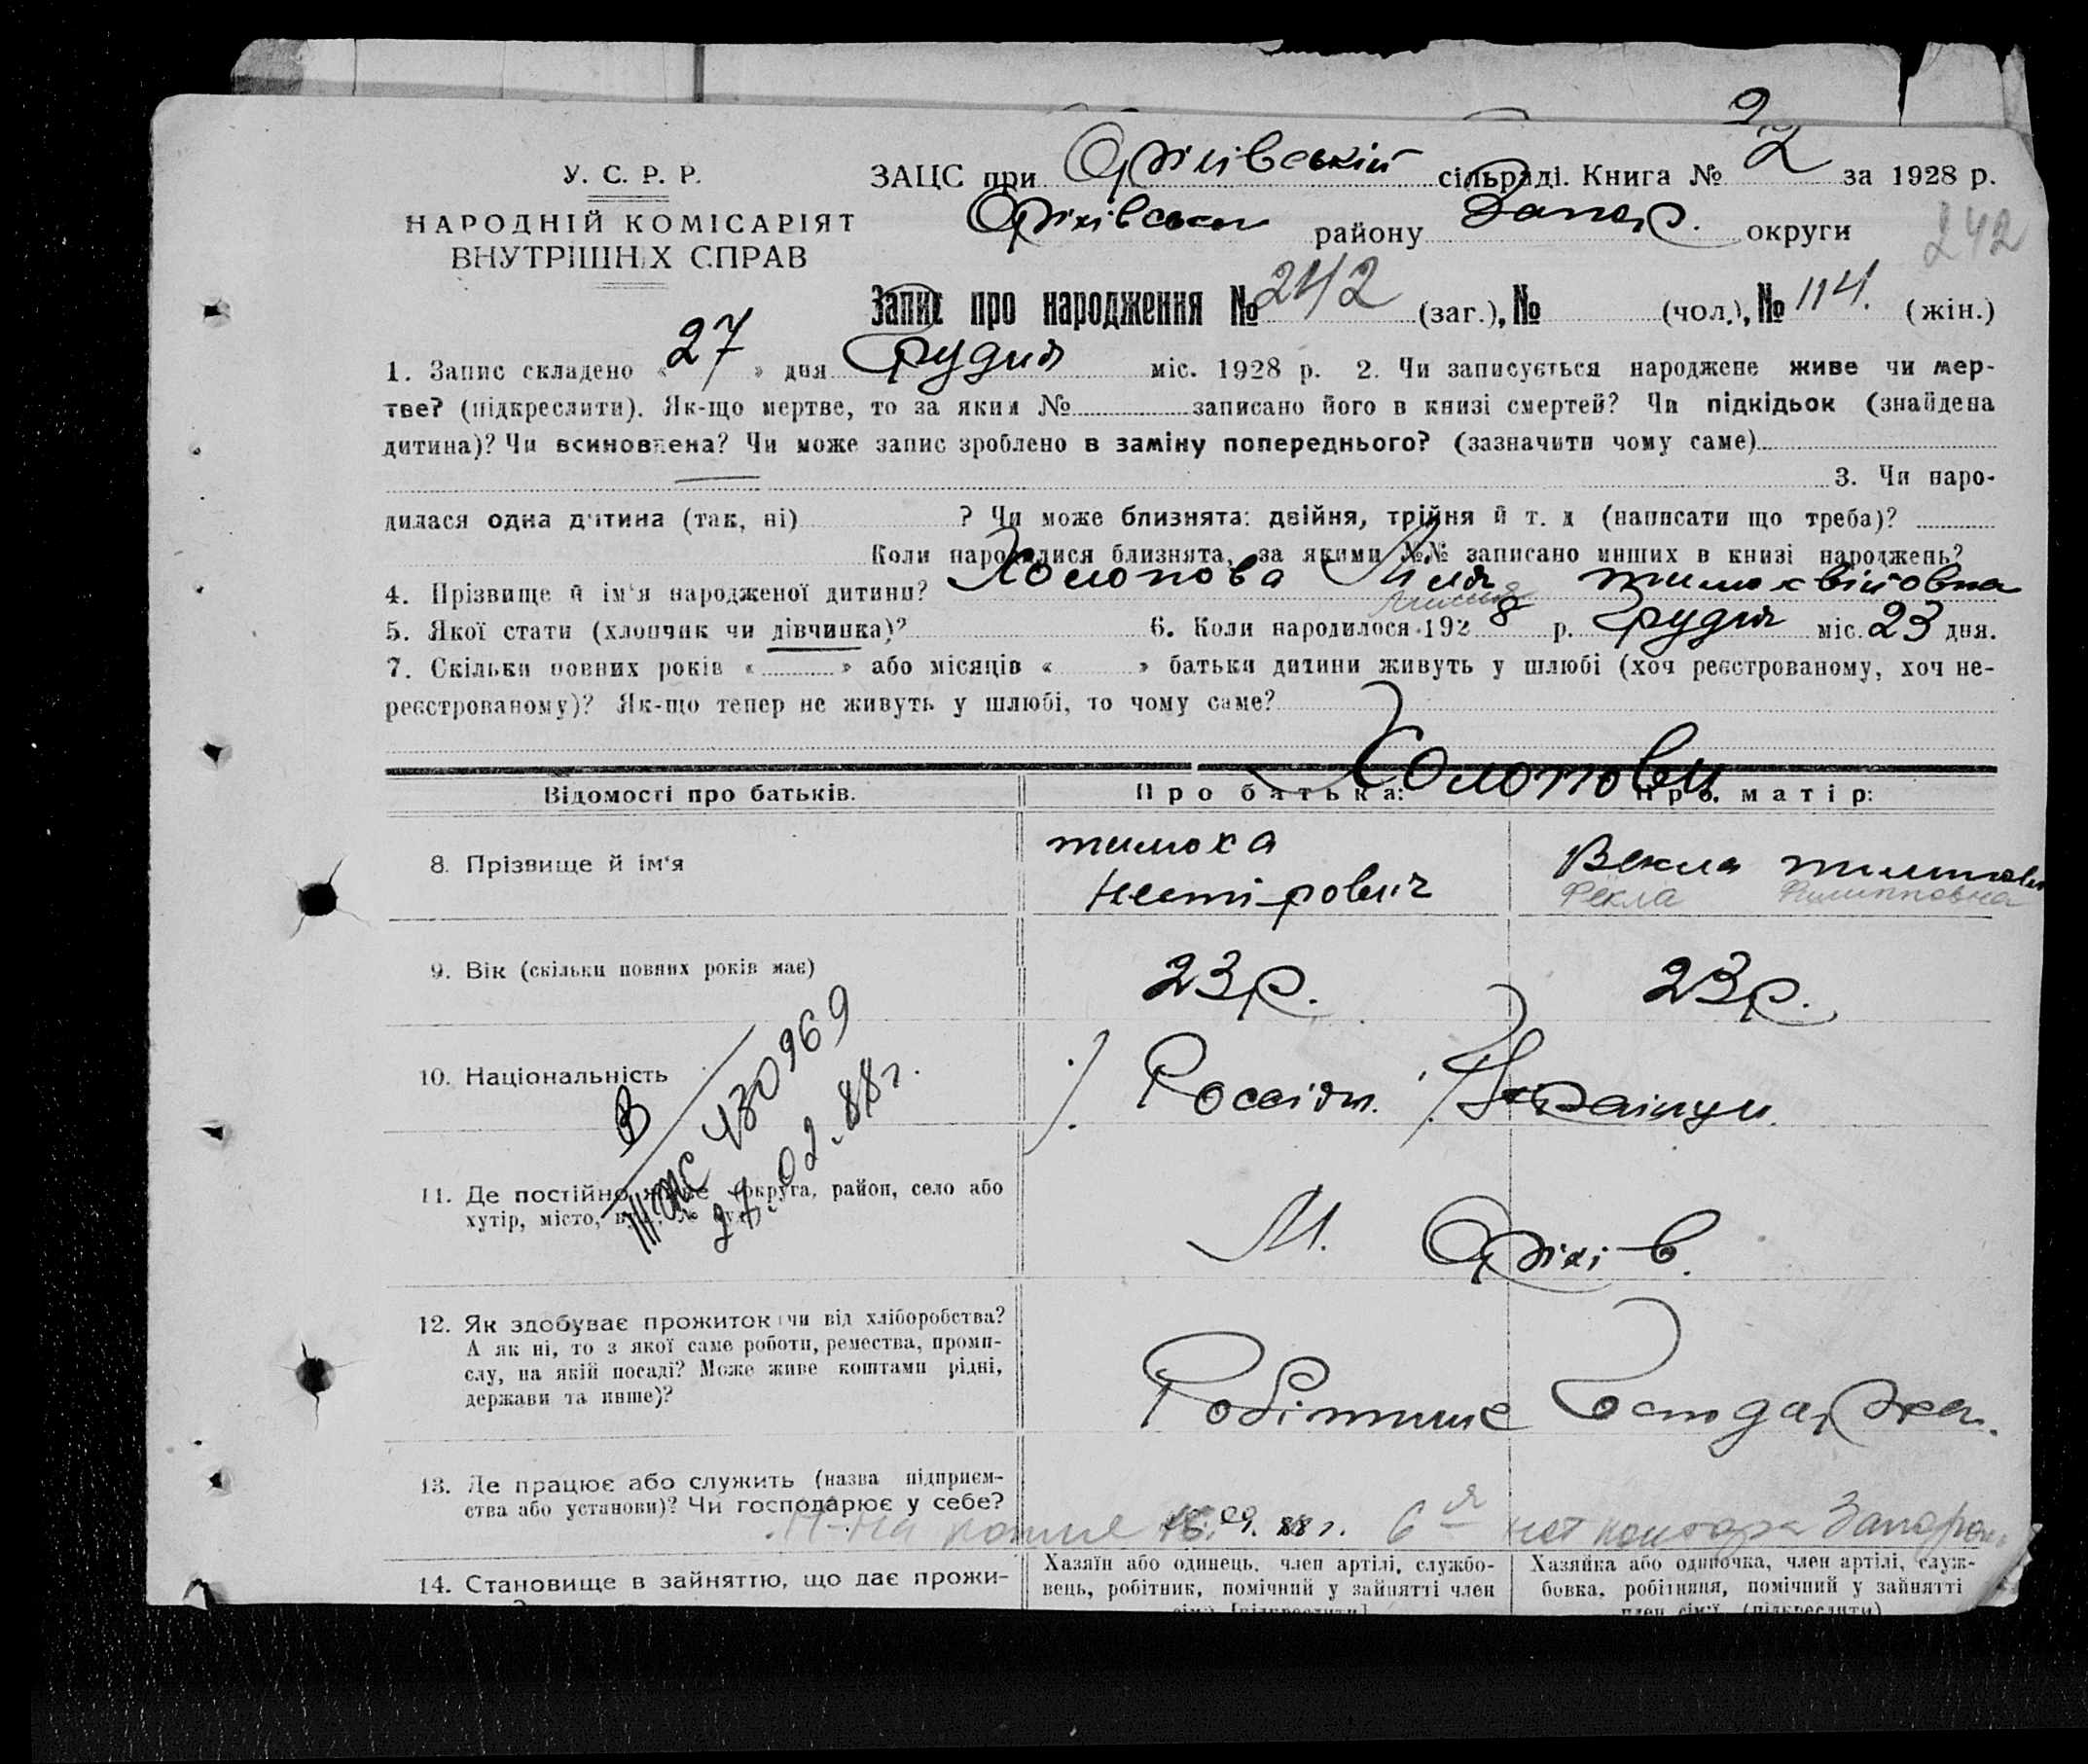 У. С. Р. Р.
НАРОДНІЙ КОМІСАРІЯТ
ВНУТРІШНІХ СПРАВ
ЗАЦС при Оріхівській сільраді. Книга № 2 за 1928 р.
Оріхівськ району Запор. округи
242
Запис про народження № 242 (заг.), № (чол.), № 114. (жін.)
1. Запис складено « 27 » дня Грудня міс. 1928 р. 2. Чи записується народжене живе чи мер-
тве? (підкреслити). Як-що мертве, то за яким № записано його в книзі смертей? Чи підкідьок (знайдена
дитина)? Чи всиновлена? Чи може запис зроблено в заміну попереднього? (зазначити чому саме)
3. Чи наро-
дилася одна дитина (так, ні) ? Чи може близнята: двійня, трійня й т. д (написати що треба)?
Коли народилися близнята, за якими №№ записано инших в книзі народжень?
4. Прізвище й ім'я народженої дитини? Холопова Тимохвіїовна
5. Якої стати (хлопчик чи дівчинка)? 6. Коли народилося 1928 р. Грудня міс. 23 дня.
7. Скільки повних років « » або місяців « » батьки дитини живуть у шлюбі (хоч реєстрованому, хоч не-
реєстрованому)? Як-що тепер не живуть у шлюбі, то чому саме?
Холопови
Відомості про батьків. Про батька: Про матір:
8. Прізвище й ім'я
тимоха
Векла
Фекла Филипповна
9. Вік (скільки повних років має) 23 р. 23 р.
10. Національність Россіян. Украінци.
В
430969
27.02.88 г.
11. Де постійно живе (округа, район, село або
хутір, місто,
М. Оріхів.
12. Як здобуває прожиток (чи від хліборобства?
А як ні, то з якої саме роботи, ремества, проми-
слу, на якій посаді? Може живе коштами рідні,
держави та инше)?
Робітник Господарка.
13. Де працює або служить (назва підприєм-
ства або установи)? Чи господарює у себе?
88 г. 6 я нот контора Запорож.
14. Становище в зайняттю, що дає прожи-
Хазяїн або одинець, член артілі, службо-
вець, робітник, помічний у зайнятті член
сім'ї (підкреслити)
Хазяйка або одиночка, член артілі, служ-
бовка, робітниця, помічний у зайнятті
член сім'ї (підкреслити)